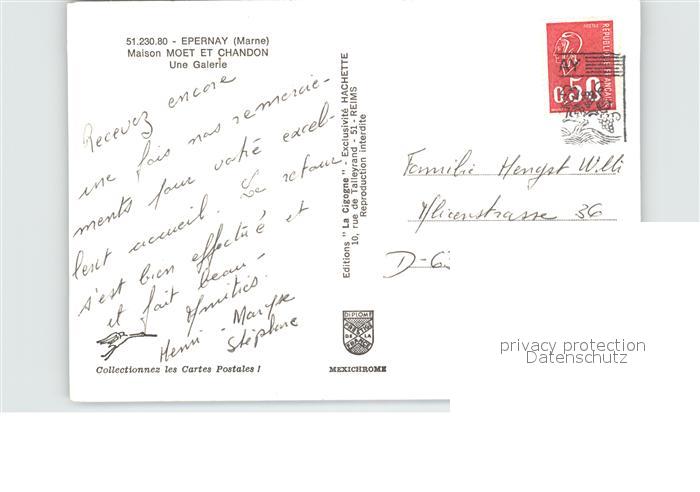 51.230.80 - EPERNAY (Marne)
Maison MOET ET CHANDON
Une Galerie
Recevez encore
une fois nos remercie-
ments pour votre excel-
lent accueil. Le retour
s'est bien effectué et
et fait beau -
Amitiés.
Henri - Maryse
Stéphane
Collectionnez les Cartes Postales !
Editions "La Cigogne" - Exclusivité HACHETTE
10, rue de Talleyrand - 51 - REIMS
Reproduction interdite
DIPLOME
PRESTIGE
DE LA
FRANCE
MEXICHROME
REPUBLIQUE FRANCAISE
0,50
AY
Familie Hengst Willi
36
D-63
privacy protection
Datenschutz